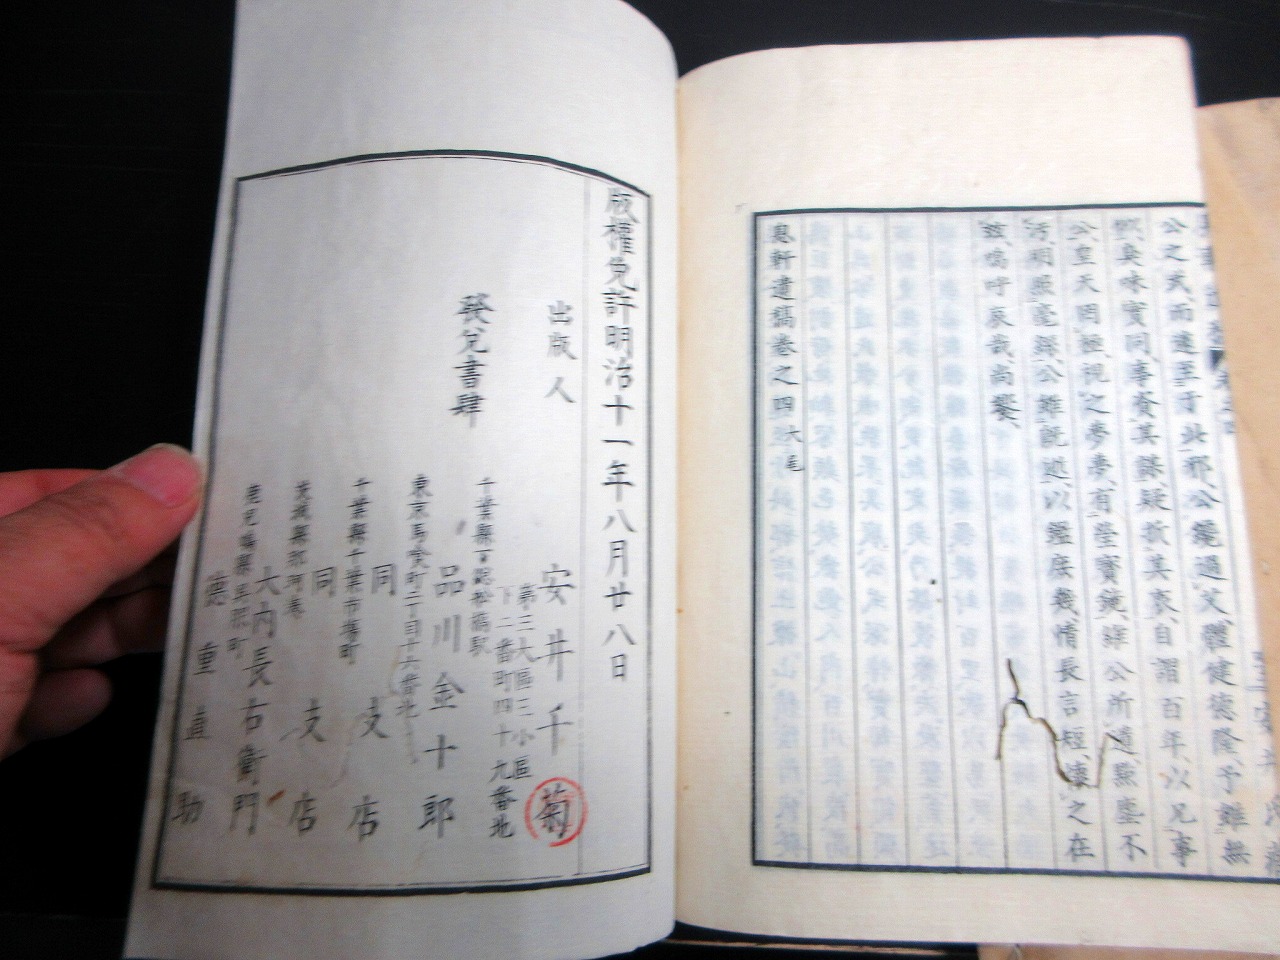 公之武而遽至于此邪公纔過艾體健德隆予雖無
臭味實同事齊其媒疑欲其衷自謂百年以兄事
公皇天罔極視之夢夢有瑩寶鏡維公所遺點塵不
汚明照毫釐公雖既逝以鑑庶幾情長言短悽之在
玆嗚呼哀哉尚饗
息軒遺稿卷之四大尾
版權免許明治十一年八月廿八日
出版人
第三大區三小區
下二番町四十九番地
安井千菊
發兌書肆
千葉縣下総松橋駅
品川金十郎
東京馬喰町二丁目十六番地
同支店
千葉縣千葉市場町
同支店
茨城縣那珂湊
大内長右衛門
鹿兒島縣
德重直助